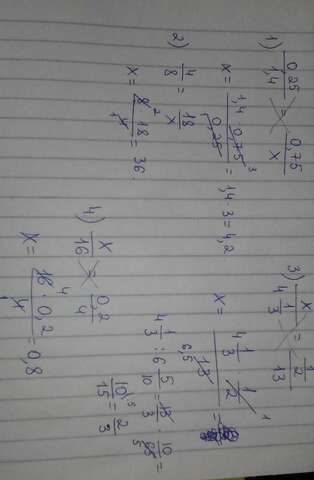 1) 0,25/1,4 = 0,75/x
x = 1,4 · 0,75/0,25 = 1,4 · 3 = 4,2
2) 4/8 = 18/x
x = 8 · 18/4 = 36.
3) x/4 1/3 = 1/2/13
x = 4 1/3 · 1/2/13 =
4 1/3 : 6 5/10 = 13/3 · 10/65 =
10/15 = 2/3
4) x/16 = 0,2/4
x = 16 · 0,2/4 = 0,8